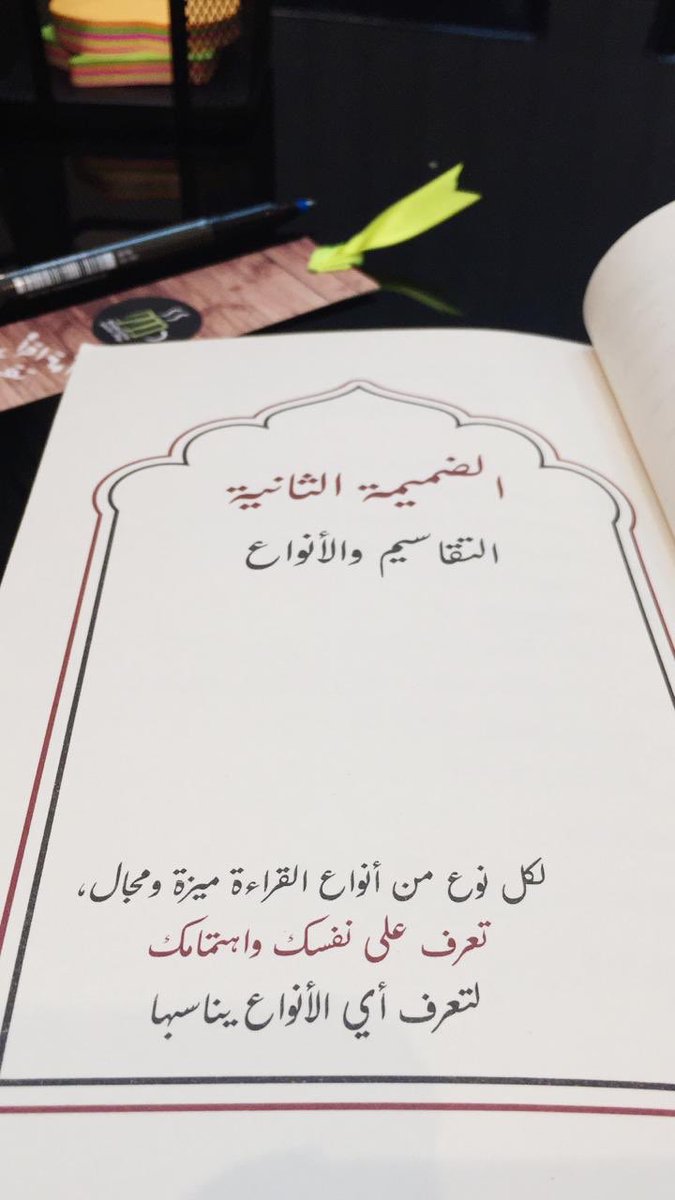 الضميمة الثانية
التقاسيم والأنواع
لكل نوع من أنواع القراءة ميزة ومجال،
تعرف على نفسك واهتمامك
لتعرف أي الأنواع يناسبها